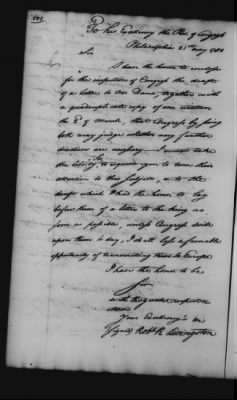 To His Excellency the Pres. of Congress
Philadelphia 21st May 1782
Sir
I have the honor to enclose
for the inspection of Congress the draft
of a letter to Mr Dana, together with
a quadruplicate copy of one written
the 2d of March, that Congress by seeing
both may judge whether any further
directions are necessary I must take
the liberty to request you to turn their
attention to this subject, & to the
draft which I had the honor to lay
before them of a letter to the King as
soon as possible, unless Congress decide
upon them to day, I shall lose a favorable
opportunity of transmitting them to Europe
I have the honor to be
Sir
with the greatest respect &
esteem
Your Excellency's &c
(signed) Robt R Livingston